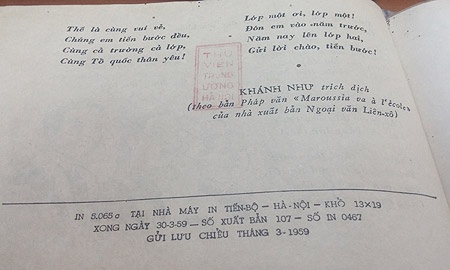 Thế là cùng vui vẻ.
Chúng em tiến bước đều,
Cùng cả trường cả lớp,
Cùng Tổ quốc thân yêu!
Lớp một ơi, lớp một!
Đón em vào năm trước,
Năm nay lên lớp hai,
Gửi lời chào, tiến bước!
THƯ
VIỆN
TRUNG
ƯƠNG
HÀ NỘI
KHÁNH NHƯ trích dịch
(theo bản Pháp văn «Maroussia va à l'école»
của nhà xuất bản Ngoại văn Liên-xô)
IN 5,065c TẠI NHÀ MÁY IN TIẾN-BỘ — HÀ-NỘI — KHỔ 13×19
XONG NGÀY 30-3-59 — SỐ XUẤT BẢN 107 — SỐ IN 0467
GỬI LƯU CHIỂU THÁNG 3-1959